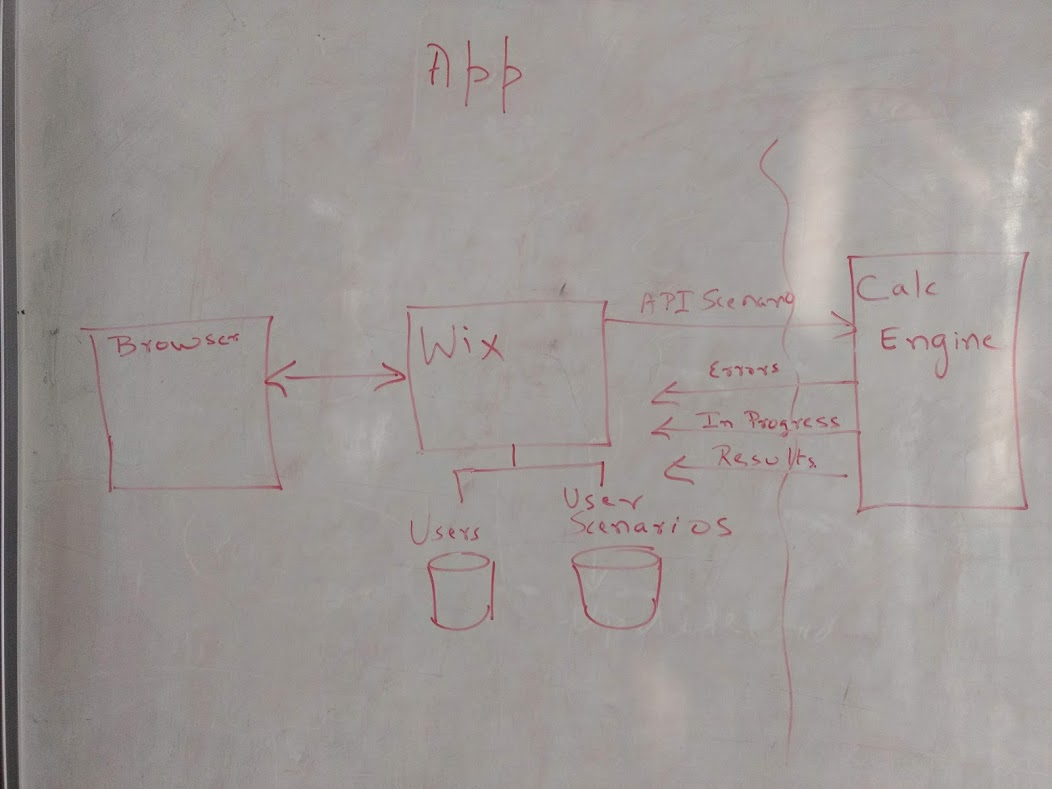 App
Browser
Wix
API Scenario
Calc
Engine
Errors
In Progress
Results
Users
User
Scenarios